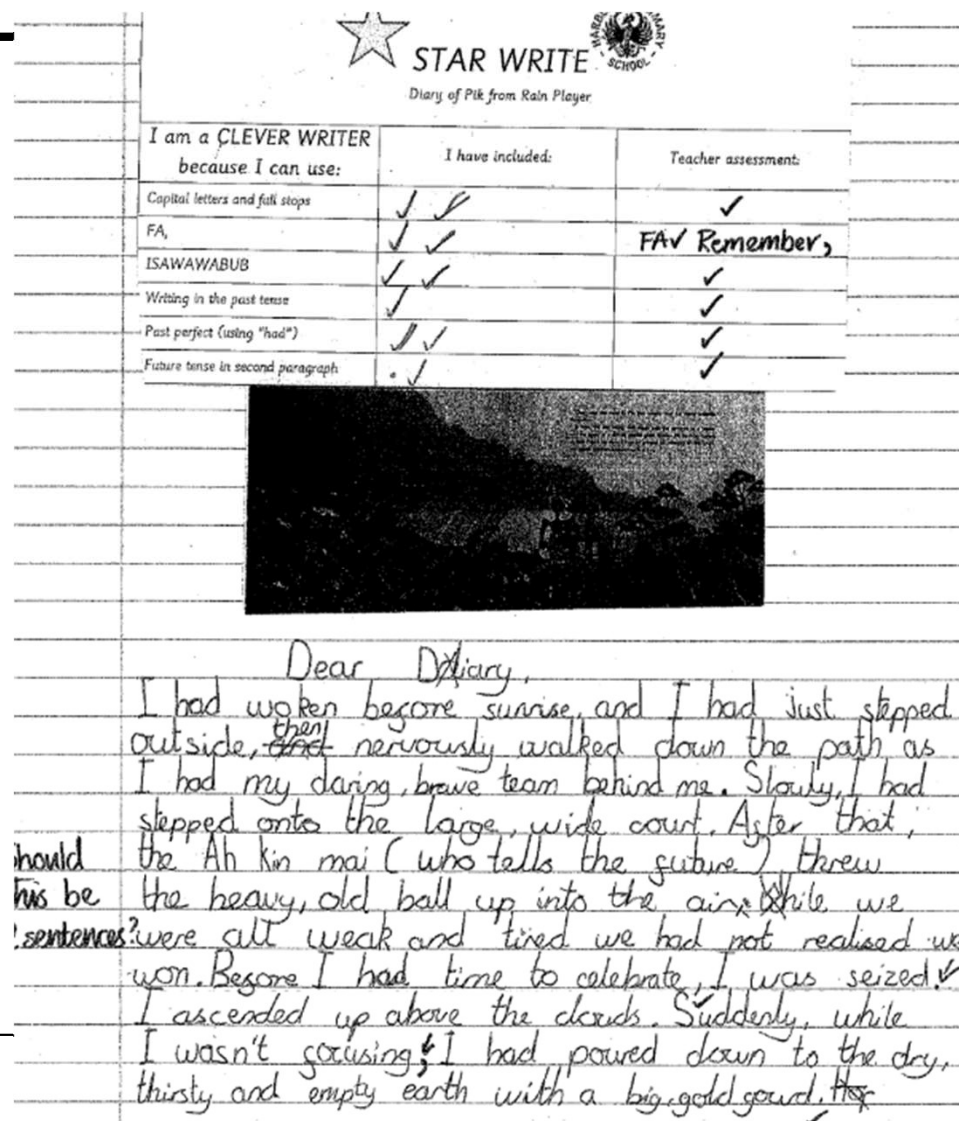 STAR WRITE
SCHOOL
Diary of Pik from Rain Player
I am a CLEVER WRITER
because I can use:
I have included:
Teacher assessment:
Capital letters and full stops ✓ ✓ ✓
FA, ✓ ✓ FA✓ Remember,
ISAWAWABUB ✓ ✓ ✓
Writing in the past tense ✓ ✓
Past perfect (using "had") ✓ ✓ ✓
Future tense in second paragraph ✓ ✓
Dear Diary,
I had woken before sunrise, and I had just stepped
then
outside, and nervously walked down the path as
I had my daring, brave team behind me. Slowly, I had
stepped onto the large, wide court. After that,
the Ah Kin mai (who tells the future) threw
the heavy, old ball up into the air. While we
were all weak and tired we had not realised we
won. Before I had time to celebrate, I was seized.
I ascended up above the clouds. Suddenly, while
I wasn't focusing, I had poured down to the dry,
thirsty and empty earth with a big, gold gourd.
hould
this be
sentences?